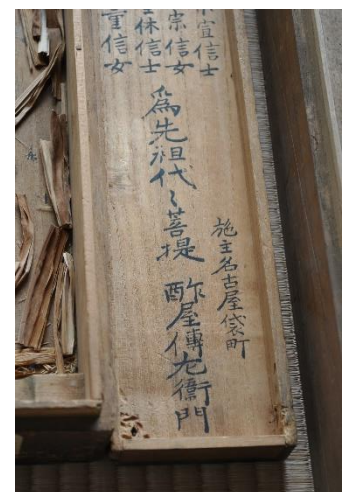 信士
宗信女
休信士
童信女
爲先祖代〻菩提
施主名古屋袋町
酢屋傳左衛門